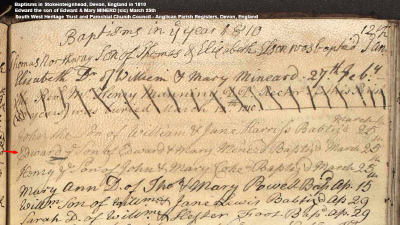 Baptisms in Stokeinteignhead, Devon, England in 1810
Edward the son of Edward & Mary MINERD (sic) March 25th
South West Heritage Trust and Parochial Church Council - Anglican Parish Registers, Devon, England
Baptisms in ye year 1810
Thomas Northway Son of Thomas & Elizabeth was baptized Jan
Elizabeth Dr of Willm & Mary Mineard 27th Feb.y
Henry Manning Rector
was buried
John the Son of William & Jane Harris Baptiz'd 25
Edward ye Son of Edward & Mary Minerd Baptiz'd March 25
Henry ye Son of John & Mary Coke Baptiz'd March 25
Mary Ann D. of Tho & Mary Powell Bapd Ap. 15
Willm Son of Willm & Jane Lewis Baptizd Ap 29
Sarah D. of Willm & Hester Foot Bapd Ap. 29